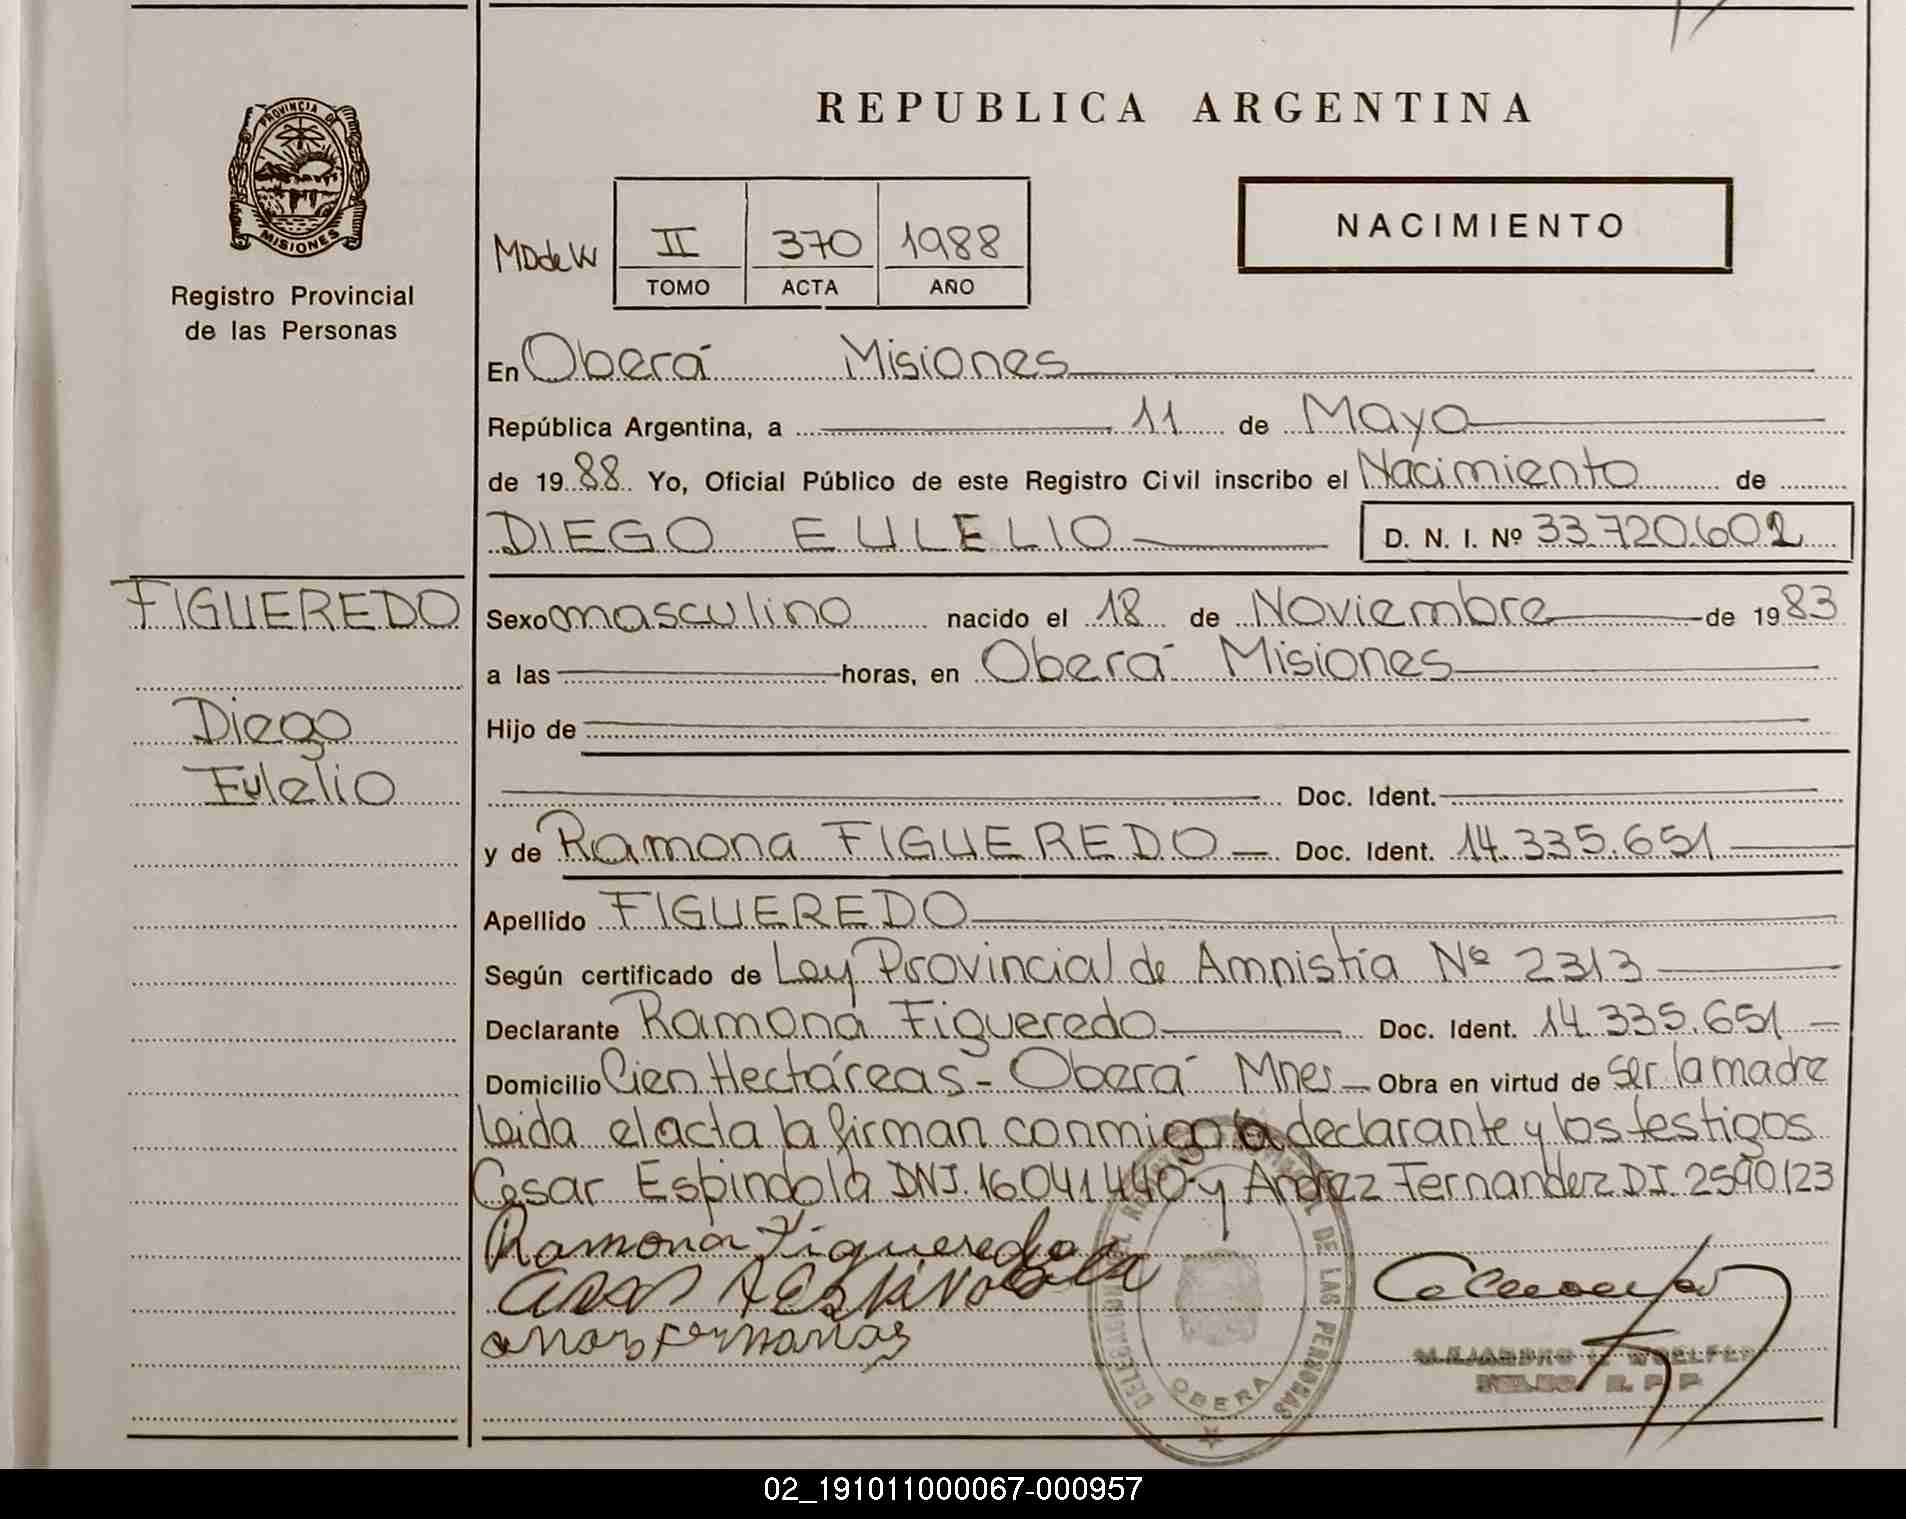 REPUBLICA ARGENTINA
PROVINCIA DE
MISIONES
Registro Provincial
de las Personas
MDdeW
II 370 1988
TOMO ACTA AÑO
NACIMIENTO
En Oberá Misiones
República Argentina, a 11 de Mayo
de 1988 Yo, Oficial Público de este Registro Civil inscribo el Nacimiento de
DIEGO EULELIO D. N. I. Nº 33.720.602
FIGUEREDO
Diego
Eulelio
Sexo masculino nacido el 18 de Noviembre de 1983
a las horas, en Oberá Misiones
Hijo de
Doc. Ident.
y de Ramona FIGUEREDO Doc. Ident. 14.335.651
Apellido FIGUEREDO
Según certificado de Ley Provincial de Amnistía Nº 2313
Declarante Ramona Figueredo Doc. Ident. 14.335.651
Domicilio Cien Hectáreas - Oberá Mnes Obra en virtud de ser la madre
Leida el acta la firman conmigo la declarante y los testigos
Cesar Espindola DNI. 16041440 y Andrez Fernandez DI. 2590123
Ramona Figueredo
DE LAS PERSONAS
OBERA
ALEJANDRO WOELFER
02_191011000067-000957